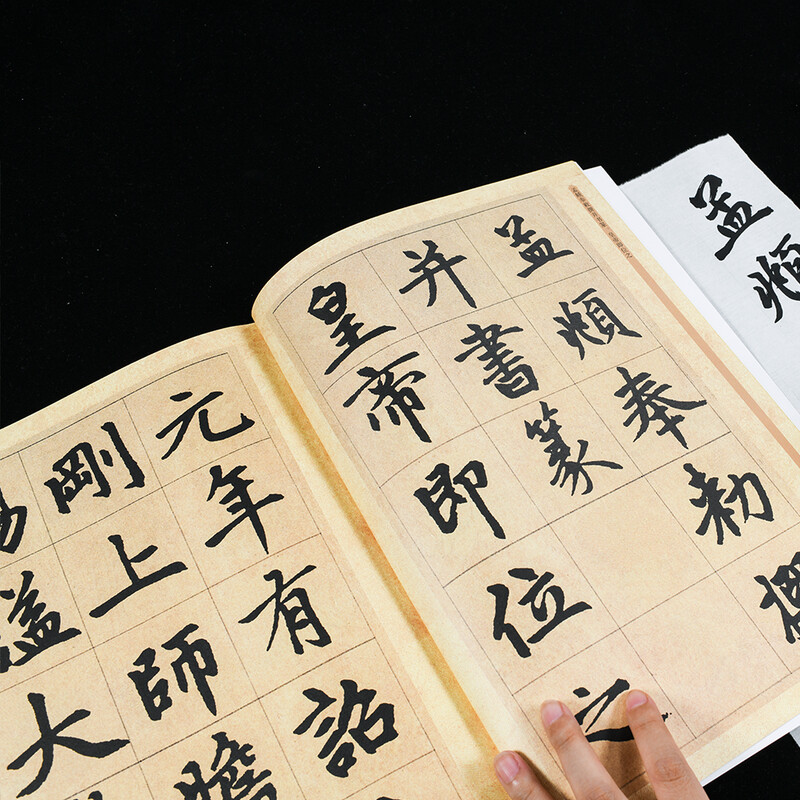 孟頫
孟頫奉勅
并書篆
皇帝即位之
元年有詔
剛上師膽
謚大